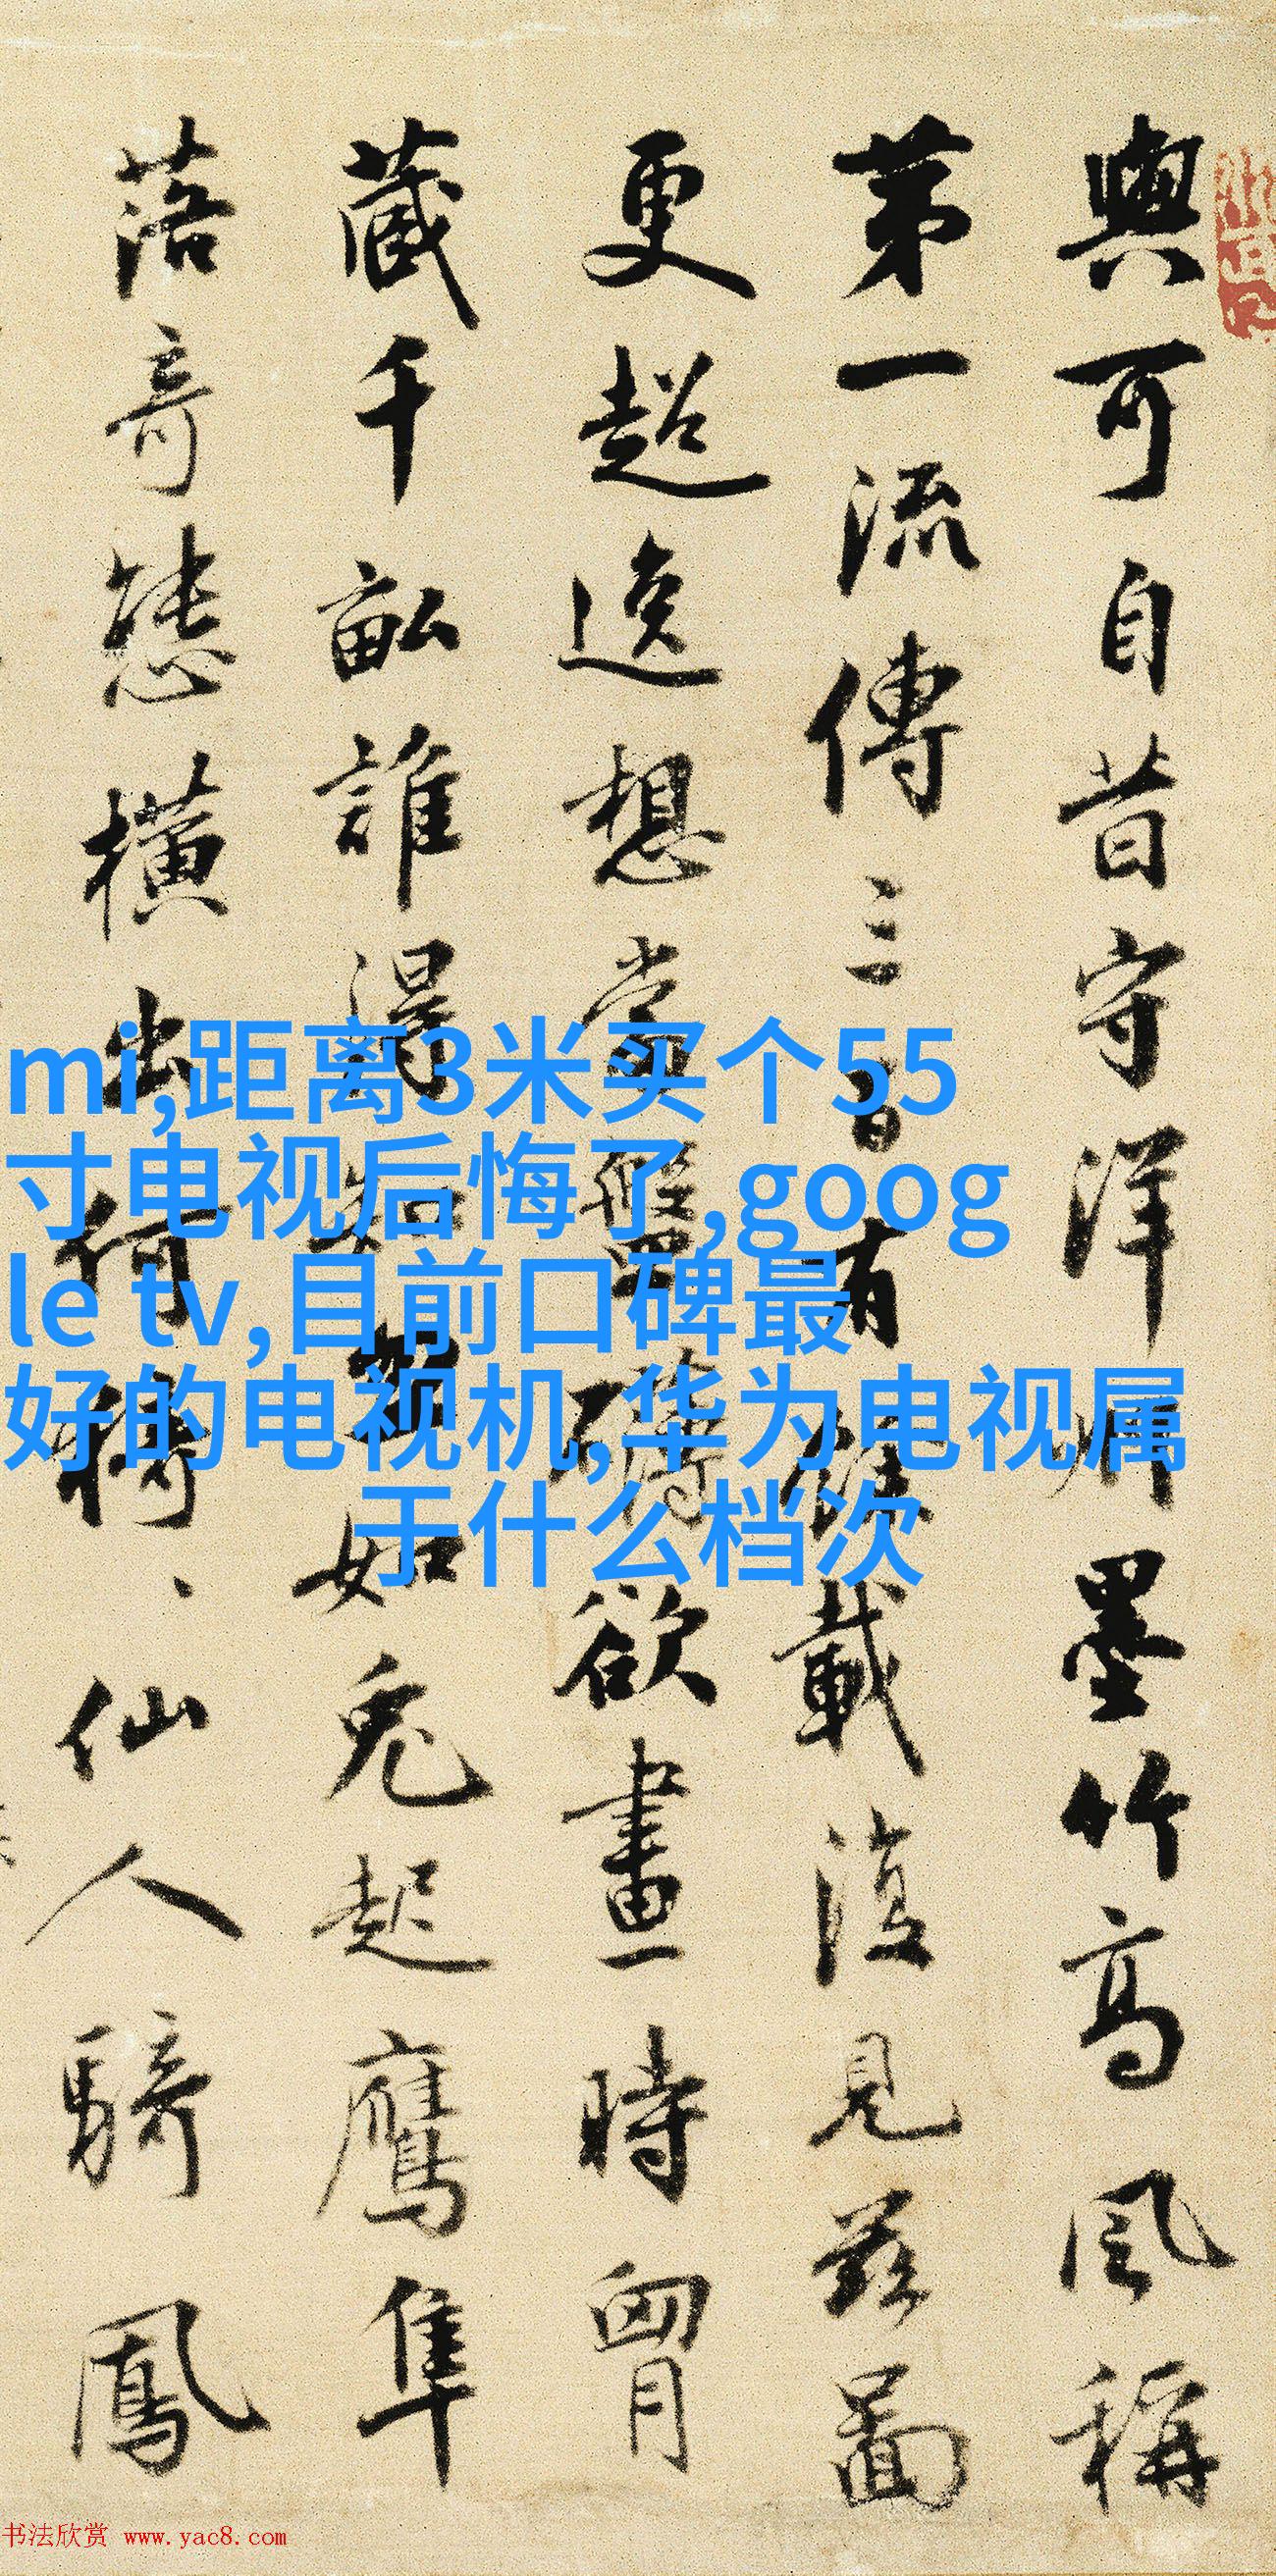 與可自昔守洋州墨竹高風稱
第一流傳三百有餘載復見茲圖
更超逸想當盤礴欲畫時胷
藏千畝誰得知勢如兔起鷹隼
落奇態橫出何猗、仙人騎鳳
mi,距离3米买个55
寸电视后悔了,goog
le tv,目前口碑最
好的电视机,华为电视属
于什么档次
书法欣赏 www.yac8.com